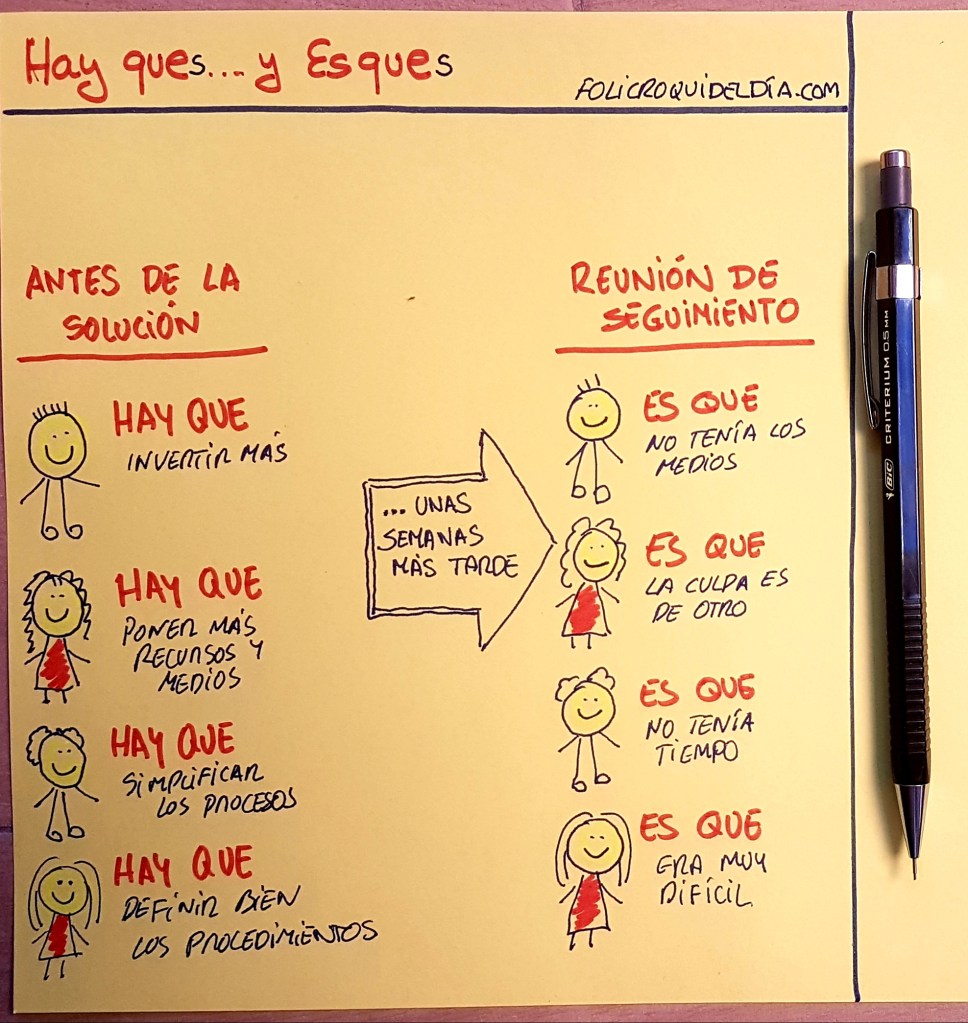 Hay ques.... y Esques
FOLICROQUIDELDÍA.COM
ANTES DE LA
SOLUCIÓN
HAY QUE
INVERTIR MÁS
HAY QUE
PONER MÁS
RECURSOS Y
MEDIOS
HAY QUE
SIMPLIFICAR
LOS PROCESOS
HAY QUE
DEFINIR BIEN
LOS PROCEDIMIENTOS
... UNAS
SEMANAS
MÁS TARDE
REUNIÓN DE
SEGUIMIENTO
ES QUE
NO TENÍA LOS
MEDIOS
ES QUE
LA CULPA ES
DE OTRO
ES QUE
NO TENÍA
TIEMPO
ES QUE
ERA MUY
DIFÍCIL
BIC CRITERIUM 0.5 MM